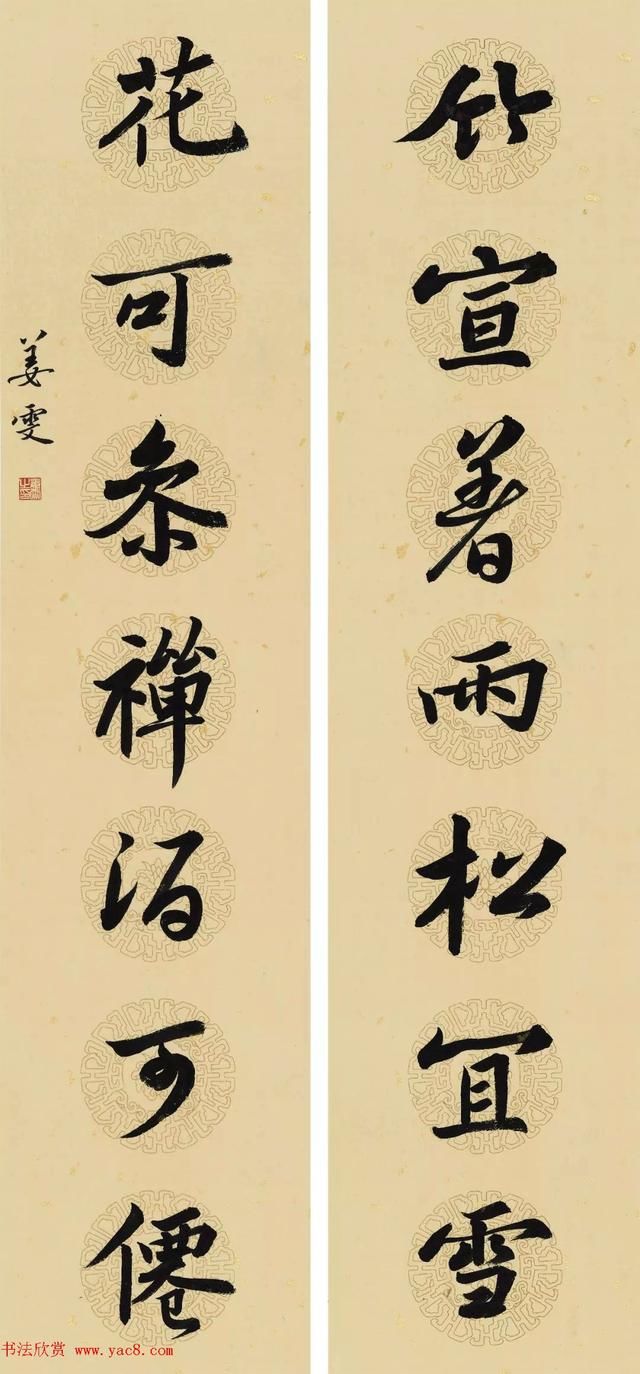 竹宣着雨松宜雪
花可参禪酒可僊
姜雯
书法欣赏 www.yac8.com